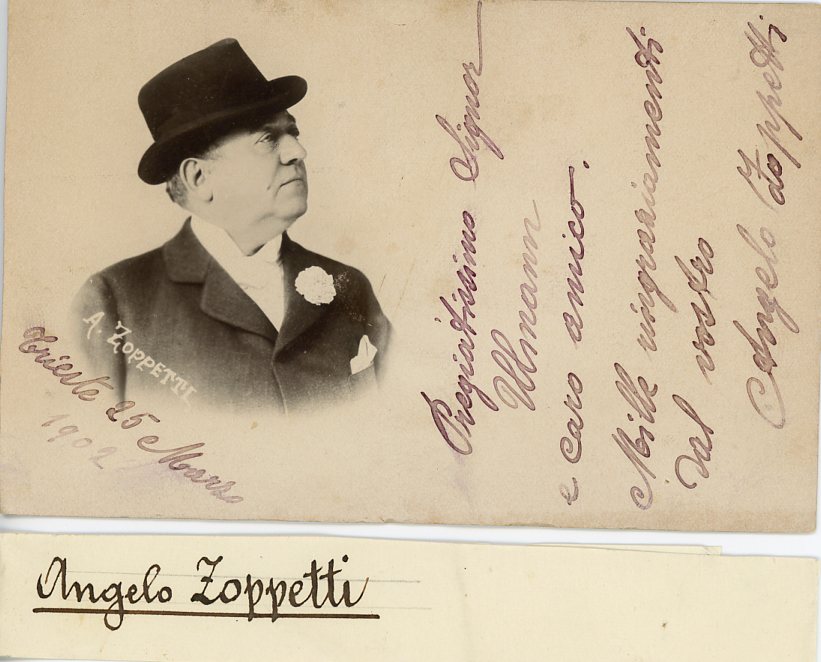 A. ZOPPETTI
Trieste 25 Marzo
1902
Pregiatissimo Signor
Ulmann
e caro amico.
Mille ringraziamenti
dal vostro
Angelo Zoppetti
Angelo Zoppetti